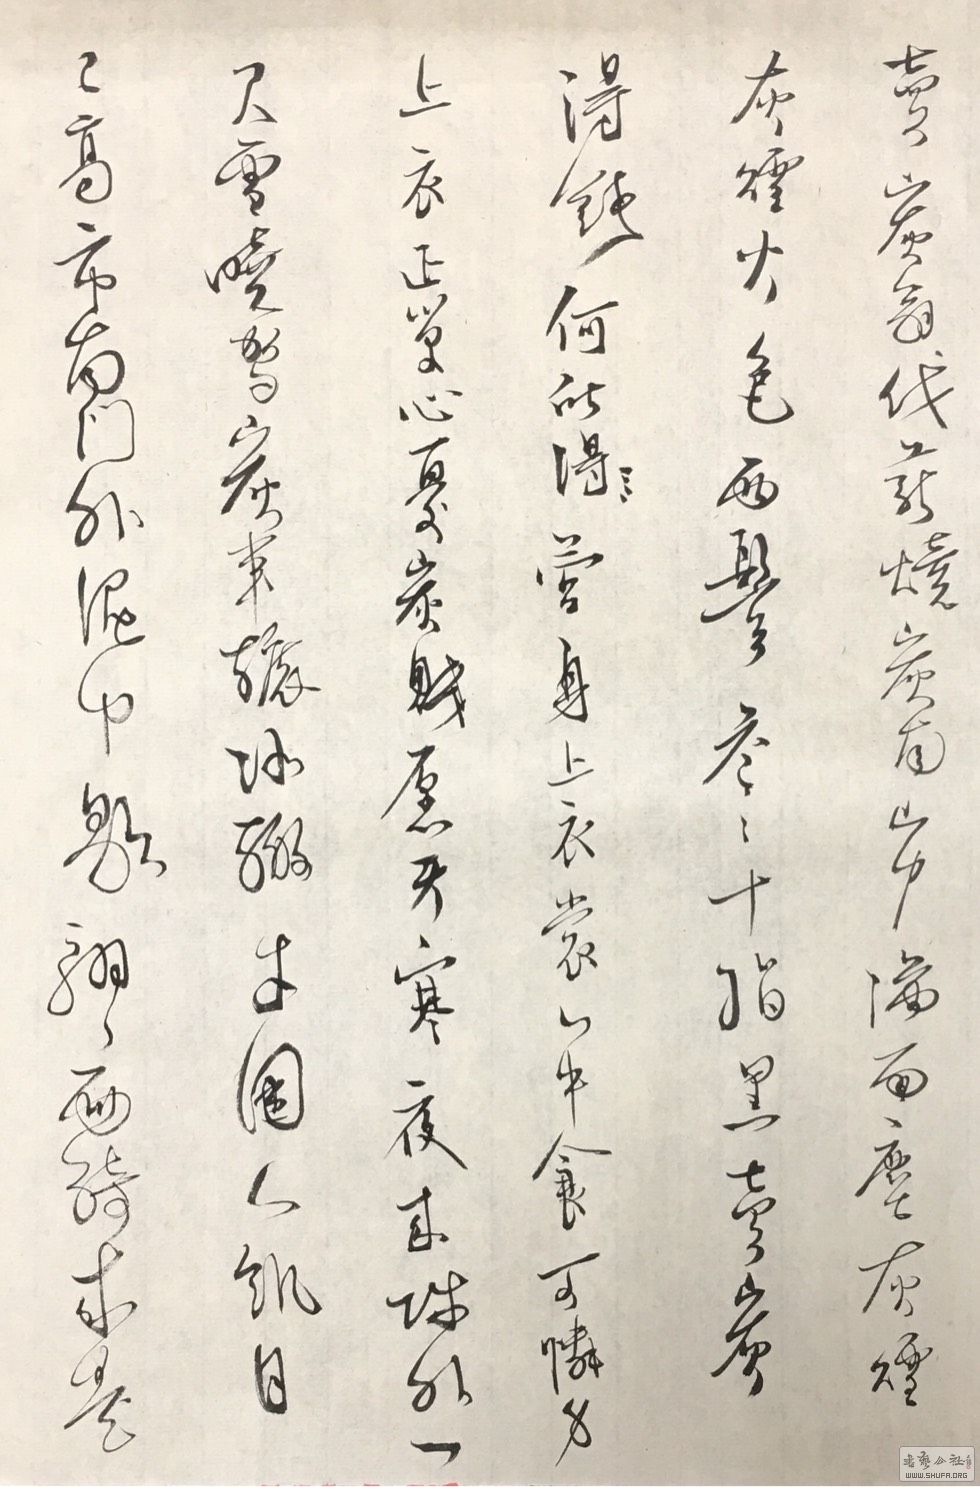 賣炭翁伐薪燒炭南山中滿面塵灰煙
灰煙火色两鬢蒼〻十指黑賣炭
得錢何所得營身上衣裳口中食可憐身
上衣正單心憂炭賤愿天寒夜来城外一
尺雪曉駕炭車輾冰轍牛困人飢日
已高市南門外泥中歇翩〻两騎来是
書藝公社
WWW.SHUFA.ORG